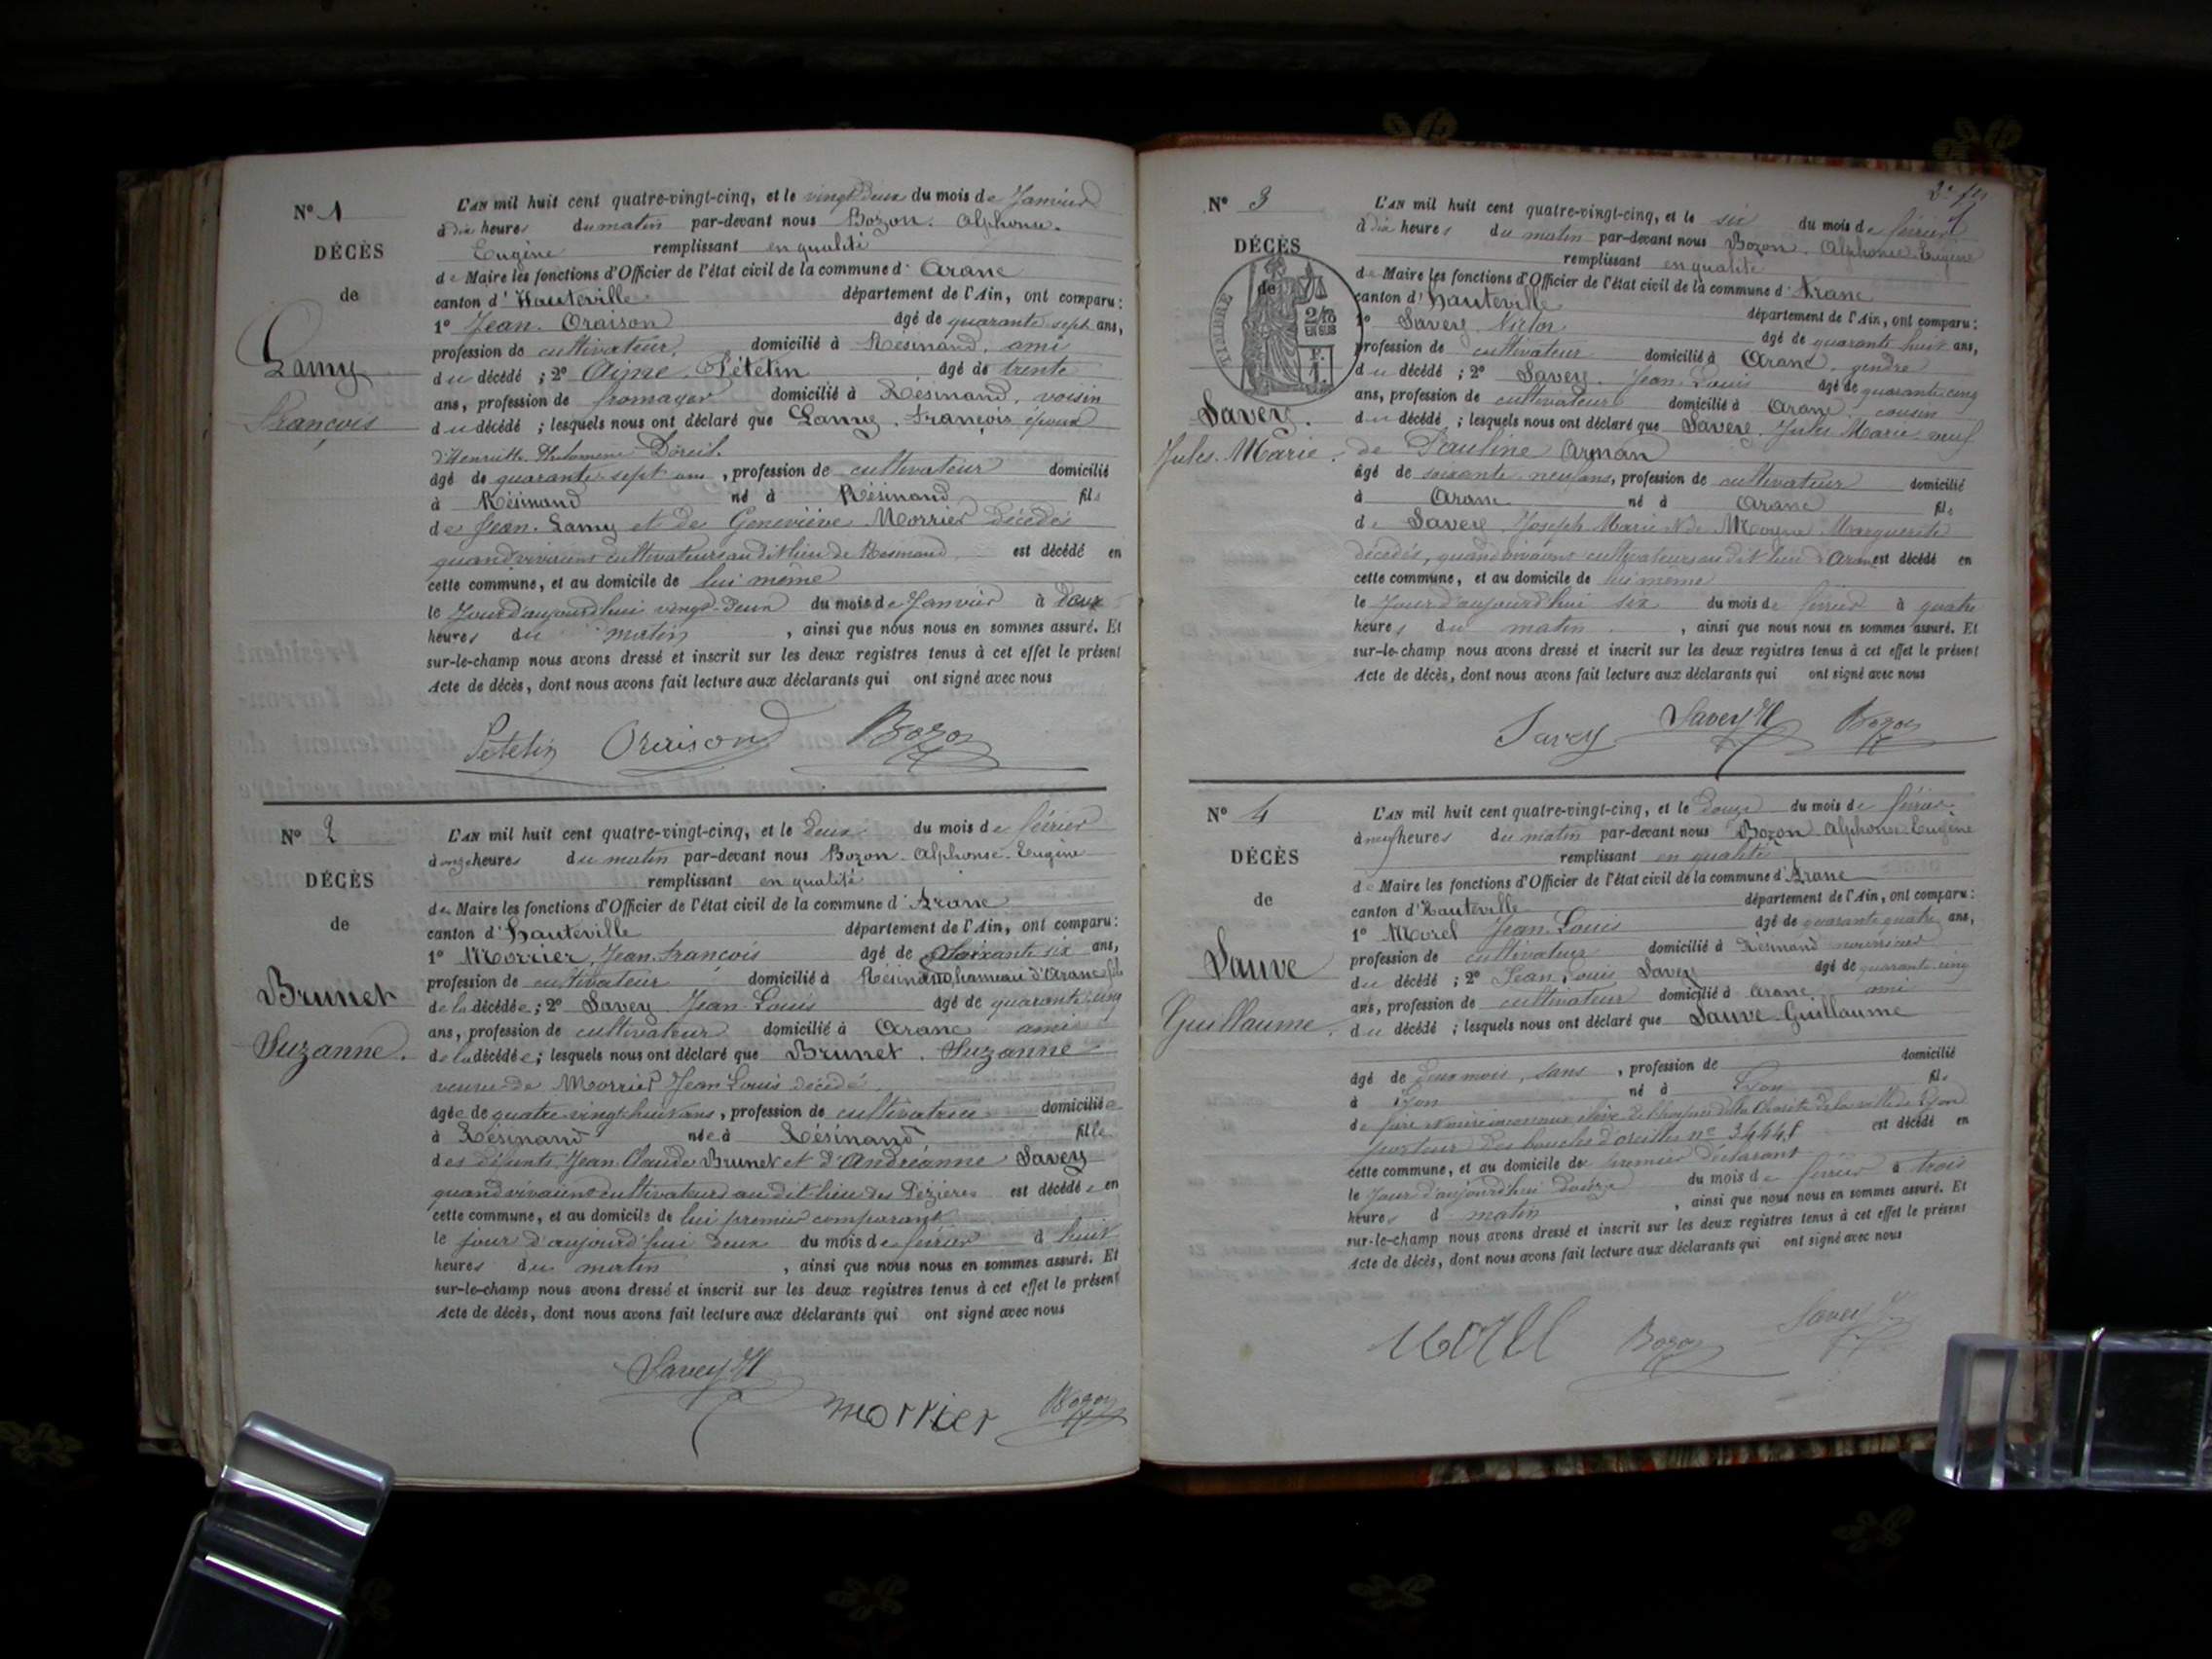 N° 1
DÉCÈS
de
Lamy
François
L'AN mil huit cent quatre-vingt-cinq, et le vingt deux du mois de Janvier
à dix heures du matin par-devant nous Bozon. Alphonse.
Eugène remplissant en qualité
de Maire les fonctions d'Officier de l'état civil de la commune d'Aranc
canton d'Hauteville département de l'Ain, ont comparu:
1° Jean Oraison âgé de quarante sept ans,
profession de cultivateur, domicilié à Résinand, ami
du décédé ; 2° Ayme Pételin âgé de trente
ans, profession de fromager domicilié à Résinand, voisin
du décédé ; lesquels nous ont déclaré que Lamy, François époux
d'Henriette Philomène
âgé de quarante sept ans, profession de cultivateur domicilié
à Résinand né à Résinand fils
de Jean Lamy et de Geneviève Morrier décédés
quand vivaient cultivateurs au dit lieu de Résinand est décédé en
cette commune, et au domicile de lui même
le jour d'aujourd'hui vingt-deux du mois de Janvier à deux
heures du matin, ainsi que nous nous en sommes assuré. Et
sur-le-champ nous avons dressé et inscrit sur les deux registres tenus à cet effet le présent
Acte de décès, dont nous avons fait lecture aux déclarants qui ont signé avec nous
Pételin Oraison Bozon
N° 2
DÉCÈS
de
Brunet
Suzanne.
L'AN mil huit cent quatre-vingt-cinq, et le deux du mois de février
à onze heures du matin par-devant nous Bozon Alphonse Eugène
remplissant en qualité
de Maire les fonctions d'Officier de l'état civil de la commune d'Aranc
canton d'Hauteville département de l'Ain, ont comparu:
1° Morrier, Jean François âgé de soixante six ans,
profession de cultivateur domicilié à Résinand hameau d'Aranc fils
de la décédée; 2° Savey Jean Louis âgé de quarante cinq
ans, profession de cultivateur domicilié à Aranc ami
de la décédée; lesquels nous ont déclaré que Brunet. Suzanne
veuve de Morrier Jean Louis décédé
âgée de quatre vingt huit ans, profession de cultivatrice domiciliée
à Résinand née à Résinand fille
des défunts Jean Claude Brunet et d'Andréanne Savey
quand vivaient cultivateurs au dit lieu des Pézières est décédée en
cette commune, et au domicile de lui premier comparant
le jour d'aujourd'hui deux du mois de février à huit
heures du matin, ainsi que nous nous en sommes assuré. Et
sur-le-champ nous avons dressé et inscrit sur les deux registres tenus à cet effet le présent
Acte de décès, dont nous avons fait lecture aux déclarants qui ont signé avec nous
Savey
morrier Bozon
N° 3
DÉCÈS
de
2/10
EN SUS
Savey.
Jules Marie.
L'AN mil huit cent quatre-vingt-cinq, et le six du mois de février
à dix heures du matin par-devant nous Bozon Alphonse Eugène
remplissant en qualité
de Maire les fonctions d'Officier de l'état civil de la commune d'Aranc
canton d'Hauteville département de l'Ain, ont comparu:
1° Savey Victor âgé de quarante huit ans,
profession de cultivateur domicilié à Aranc, gendre
du décédé ; 2° Savey Jean Louis âgé de quarante cinq
ans, profession de cultivateur domicilié à Aranc, cousin
du décédé ; lesquels nous ont déclaré que Savey Jules Marie veuf
de Pauline Arman
âgé de soixante neuf ans, profession de cultivateur domicilié
à Aranc né à Aranc fils
de Savey Joseph Marie & de Moyne Marguerite
décédés, quand vivaient cultivateurs au dit lieu d'Aranc est décédé en
cette commune, et au domicile de lui même
le jour d'aujourd'hui six du mois de février à quatre
heures du matin, ainsi que nous nous en sommes assuré. Et
sur-le-champ nous avons dressé et inscrit sur les deux registres tenus à cet effet le présent
Acte de décès, dont nous avons fait lecture aux déclarants qui ont signé avec nous
Savey Savey Bozon
N° 4
DÉCÈS
de
Sauve
Guillaume.
L'AN mil huit cent quatre-vingt-cinq, et le douze du mois de février
à neuf heures du matin par-devant nous Bozon Alphonse Eugène
remplissant en qualité
de Maire les fonctions d'Officier de l'état civil de la commune d'Aranc
canton d'Hauteville département de l'Ain, ont comparu:
1° Morel Jean Louis âgé de quarante quatre ans,
profession de cultivateur domicilié à Résinand nourricier
du décédé ; 2° Jean Louis Savey âgé de quarante cinq
ans, profession de cultivateur domicilié à Aranc ami
du décédé ; lesquels nous ont déclaré que Sauve Guillaume
âgé de deux mois, sans, profession de domicilié
à Lyon né à Lyon fils
de père & mère inconnus élève de l'hospice de la Charité de la ville de Lyon
porteur des boucles d'oreilles n° est décédé en
cette commune, et au domicile de premier déclarant
le jour d'aujourd'hui douze du mois de février à trois
heures d matin, ainsi que nous nous en sommes assuré. Et
sur-le-champ nous avons dressé et inscrit sur les deux registres tenus à cet effet le présent
Acte de décès, dont nous avons fait lecture aux déclarants qui ont signé avec nous
Morel Bozon Savey